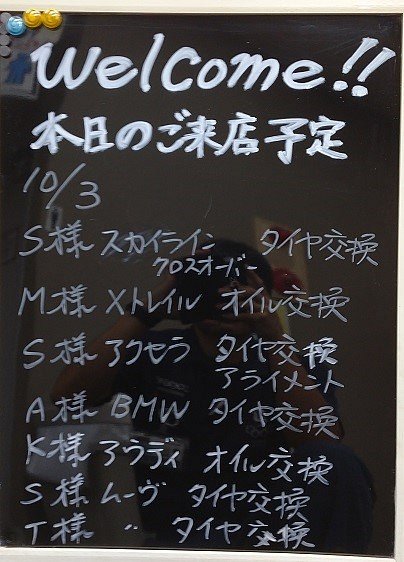 Welcome!!
本日のご来店予定
10/3
S様 スカイライン タイヤ交換
クロスオーバー
M様 Xトレイル オイル交換
S様 アクセラ タイヤ交換
アライメント
A様 BMW タイヤ交換
K様 アウディ オイル交換
S様 ムーヴ タイヤ交換
T様 〃 タイヤ交換